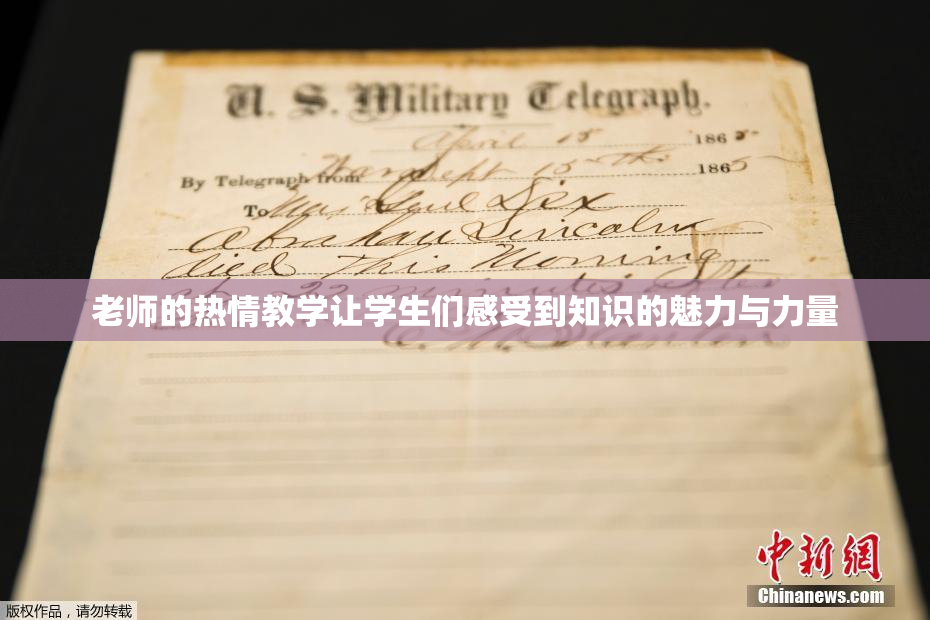 U. S. Military Telegraph.
April 15 1865
By Telegraph from War Dept 15th 1865
To Maj Genl Dix
Abraham Lincoln
died This Morning
老师的热情教学让学生们感受到知识的魅力与力量
中新网
Chinanews.com
版权作品，请勿转载